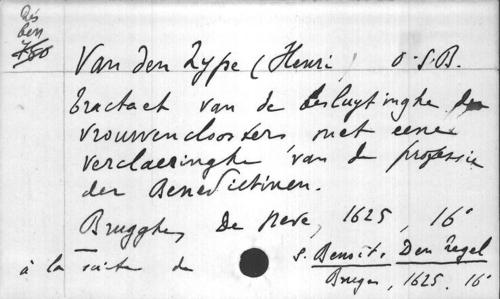 Rés
ben
480
Van den Zype (Henri) O.S.B.
Tractaet van de besluytinghe der
vrouwencloosters met eene
verclaeringhe van de professie
der Benedictinen.
Brugghe, De Neve, 1625, 16°
à la suite de S. Benoit. Den Regel
Bruges, 1625. 16°